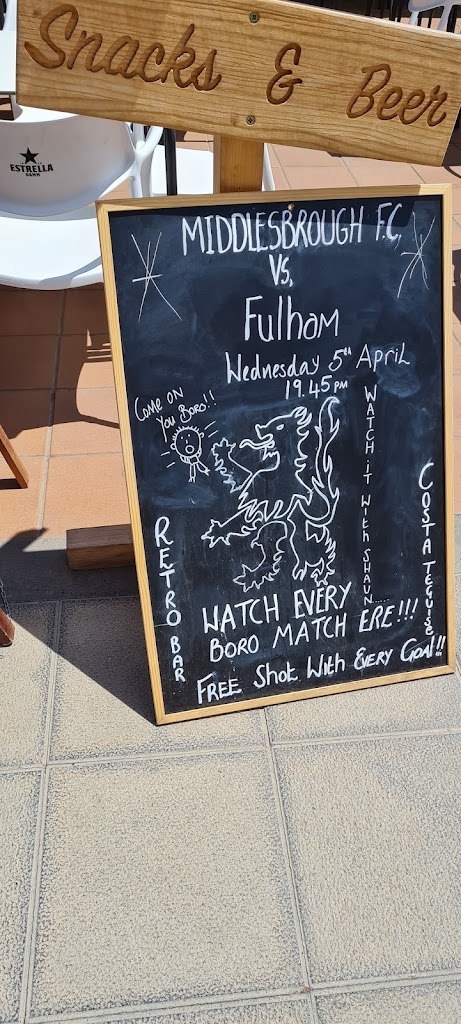 Snacks & Beer
ESTRELLA
DAMM
MIDDLESBROUGH F.C.
VS.
Fulham
Wednesday 5th April
19.45 PM
Come on
You Boro!!
WATCH IT WITH SHAUN....
RETRO BAR
COSTA TEGUISE
WATCH EVERY
BORO MATCH ERE!!!
FREE Shot With Every Goal!!